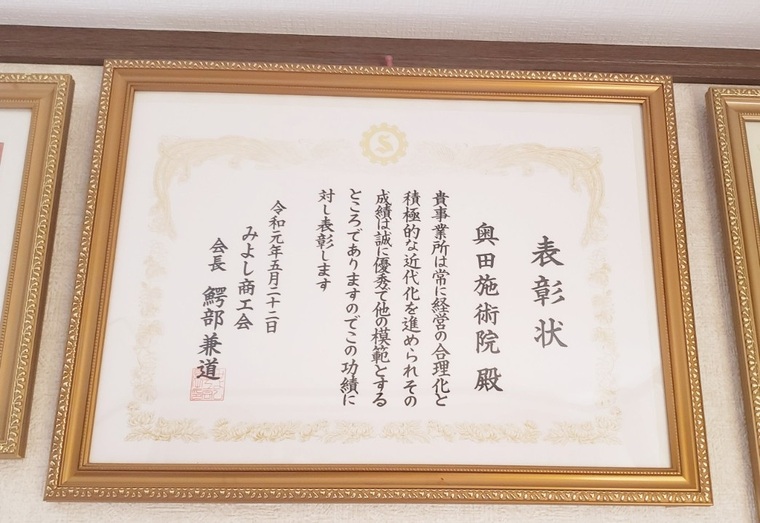 表彰状
奥田施術院 殿
貴事業所は常に経営の合理化と
積極的な近代化を進められその
成績は誠に優秀で他の模範とする
ところでありますのでこの功績に
対し表彰します
令和元年五月二十二日
みよし商工会
会長 鰐部兼道